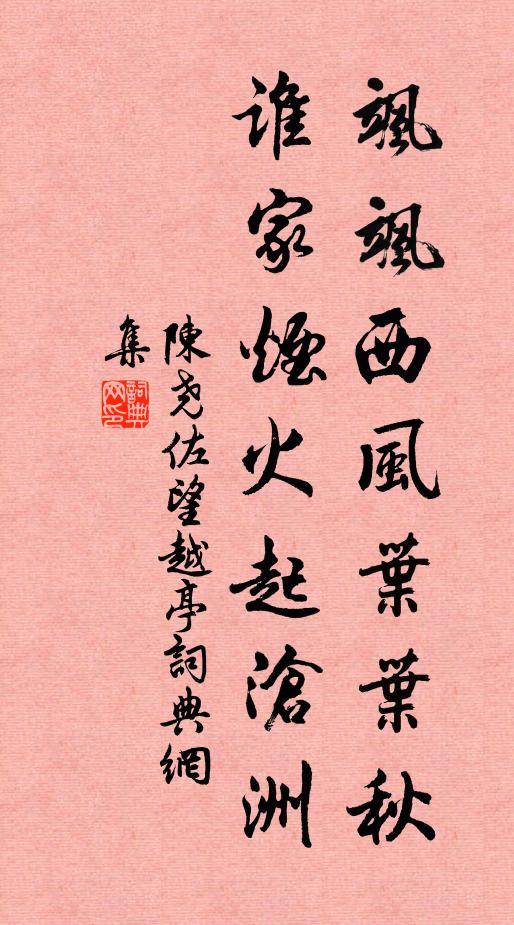 颯颯西風葉葉秋
誰家煙火起滄洲
陳堯佐望越亭詞典網
集
詞典网印